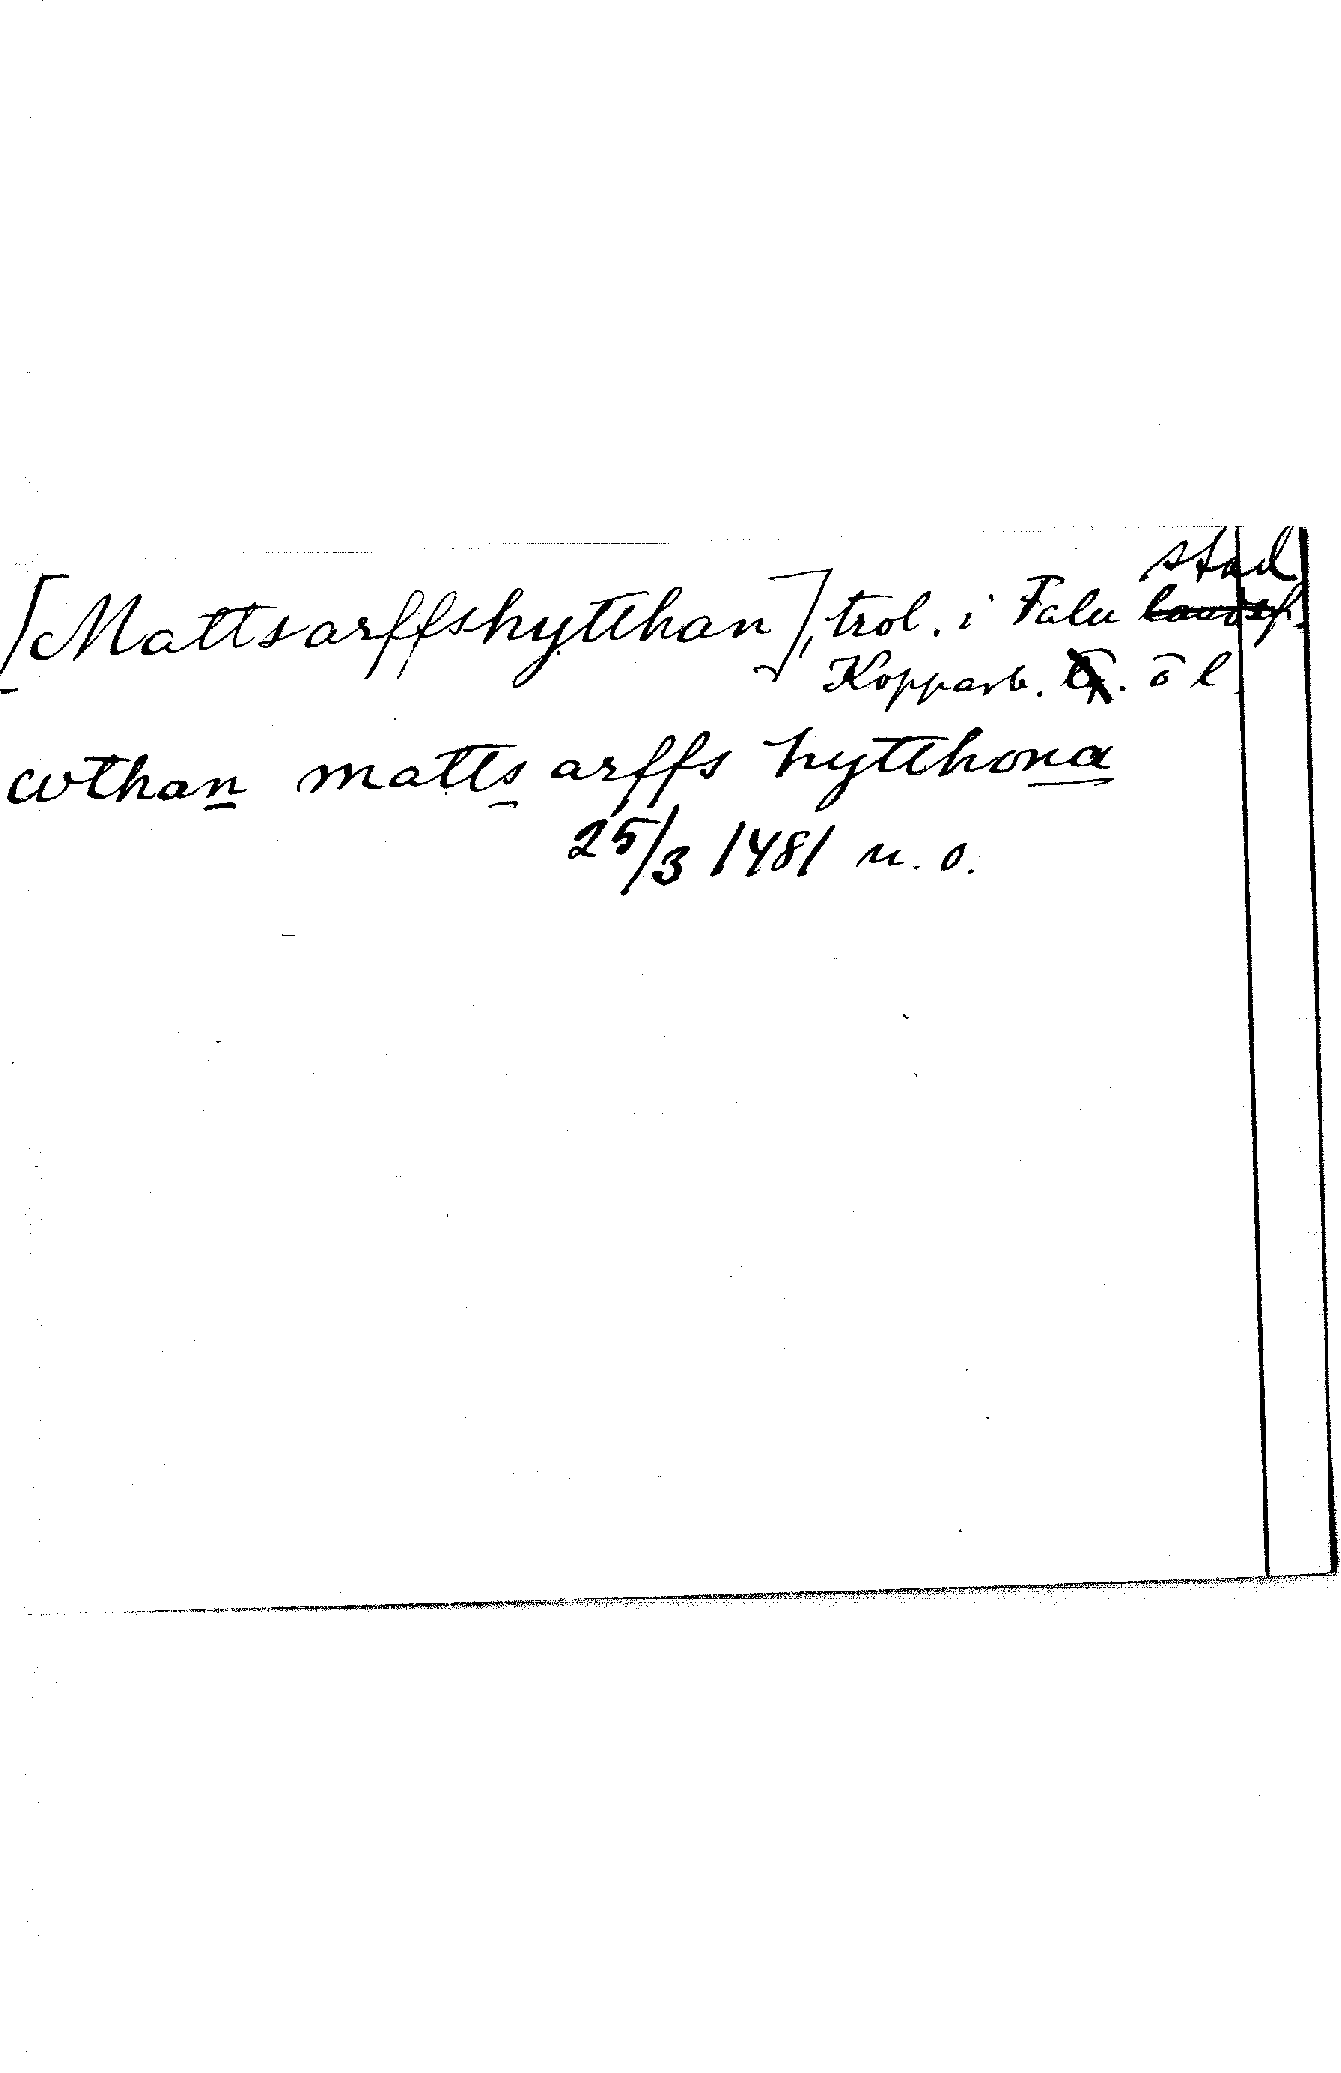 stad
[Mattsarffshytthan], trol. i Falu landsf.
Kopparb. ö l
wthan matts arffs hytthona
25/3 1481 u. o.